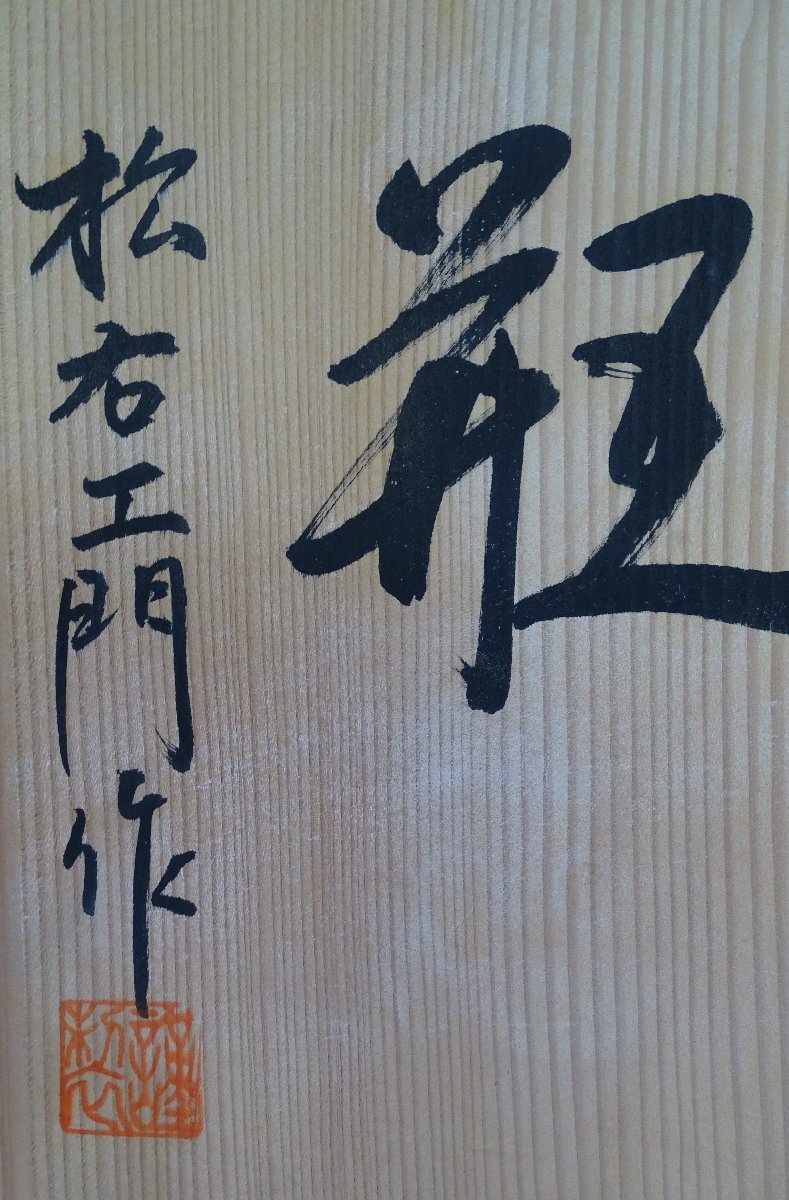 瓶
松右エ門作